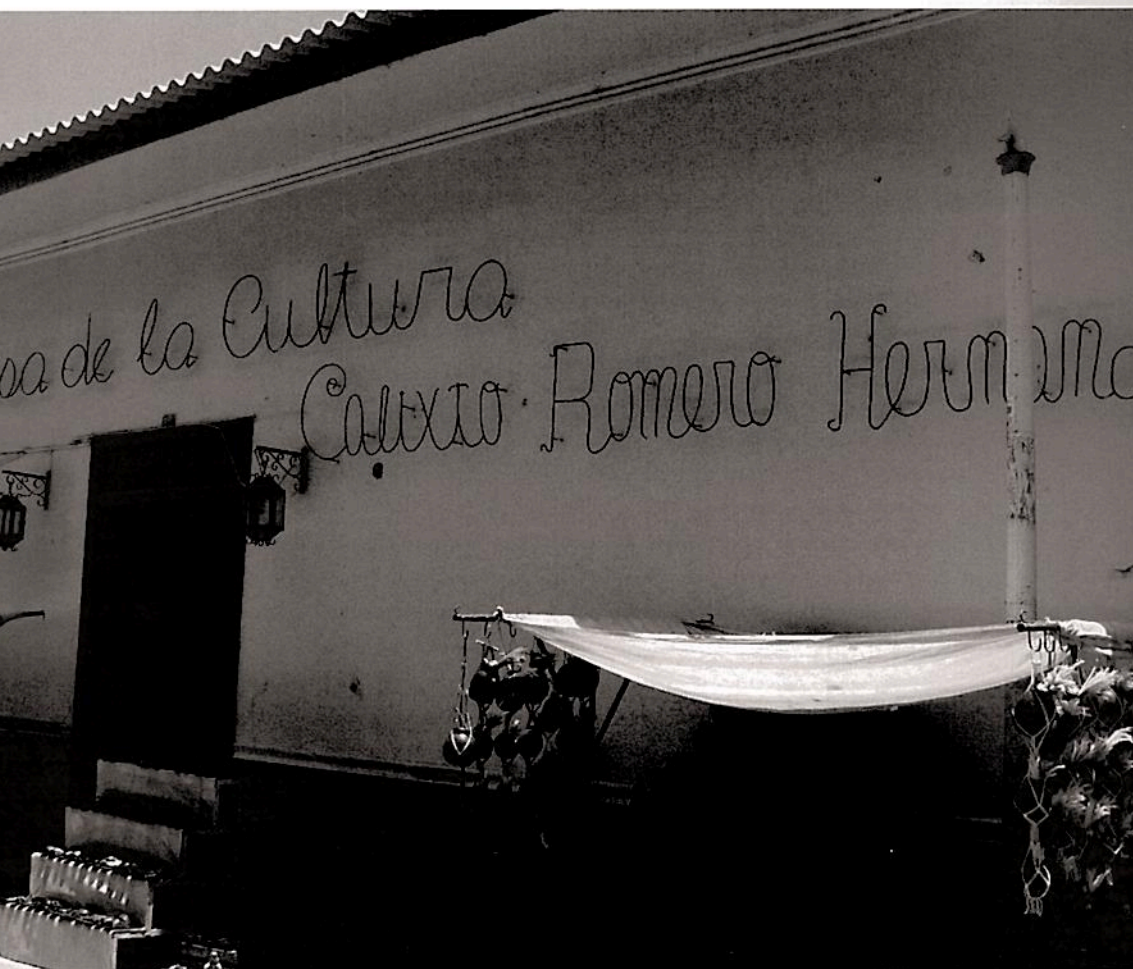 sa de la Cultura
Calixto Romero Hernand